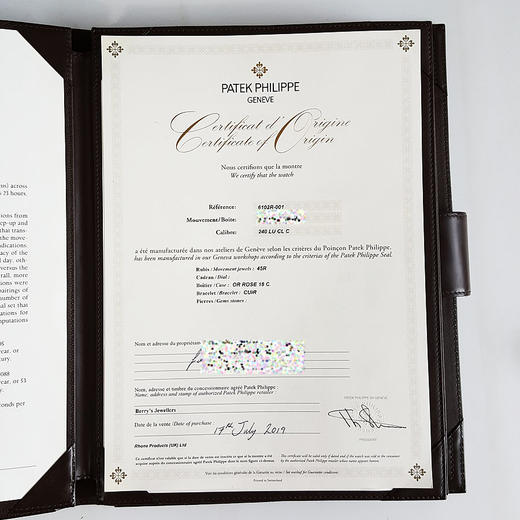 us) across
s 23 hours.
tions from
ep-up and
that trans-
the move-
dications.
al day, oth-
versus the
rall, more
pairings of
number of
al set that
tations for
mputations
5
year, or
tury.
088
ear, or 53
day.
conds per
PATEK PHILIPPE
GENEVE
Certificat d'Origine
Certificate of Origin
Nous certifions que la montre
We certify that the watch
Référence: 6102R-001
Mouvement/Boîte:
Calibre: 240 LU CL C
a été manufacturée dans nos ateliers de Genève selon les critères du Poinçon Patek Philippe.
has been manufactured in our Geneva workshop according to the criterias of the Patek Philippe Seal.
Rubis / Movement jewels : 45R
Cadran / Dial :
Boîtier / Case : OR ROSE 18 C
Bracelet / Bracelet : CUIR
Pierres / Gem stones :
Nom et adresse du propriétaire
Nom, adresse et timbre du concessionnaire agréé Patek Philippe :
Name, address and stamp of authorized Patek Philippe retailer
Berry's Jewellers
PATEK PHILIPPE SA GENEVE
Date de la vente / Date of purchase : 17th July 2019
PRESIDENT
Rhone Products (UK) Ltd
Ce certificat n'est valable que si la date de vente est inscrite et que si la montre a été
acquise auprès du concessionnaire agréé Patek Philippe dont le nom figure ci-dessus.
This certificate will be valid only if dated and if the watch was sold to the customer by
the authorized Patek Philippe retailer whose name appears hereon.
Voir les conditions générales de la Garantie au verso / See overleaf for Guarantee conditions
Printed in Switzerland